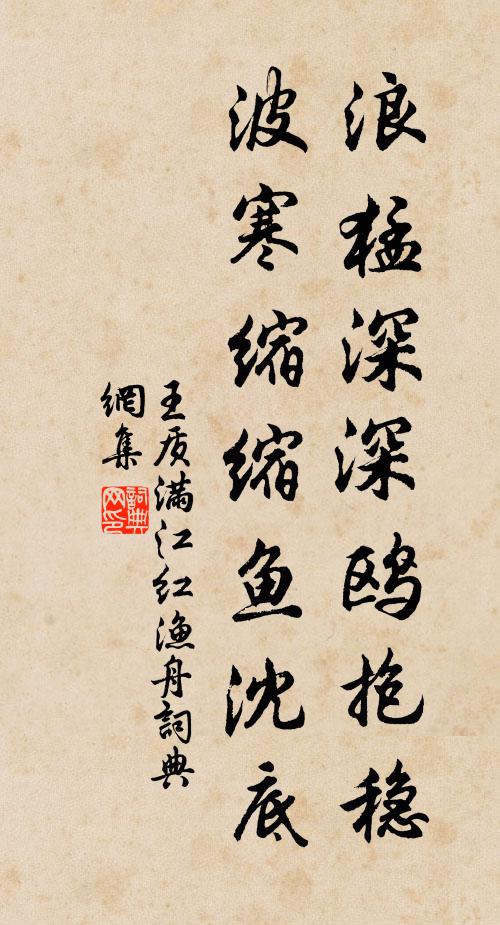 浪猛深深鸥抱稳
波寒缩缩鱼沈底
王质满江红渔舟詞典
網集
詞典网印